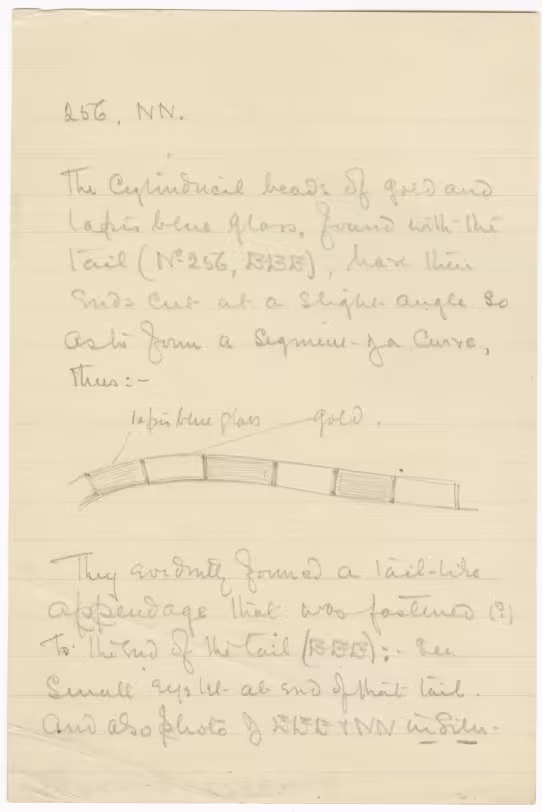 256, NN.
The Cylindrical beads of gold and
lapis blue glass, found with the
tail (Nº 256, EEE), have their
ends cut at a slight angle so
as to form a segment of a curve,
thus:-
lapis blue glass gold.
They evidently formed a tail-like
appendage that was fastened (?)
to the end of the tail (EEE):- see
small eyelet at end of that tail.
And also photo of EEE + NN in situ-